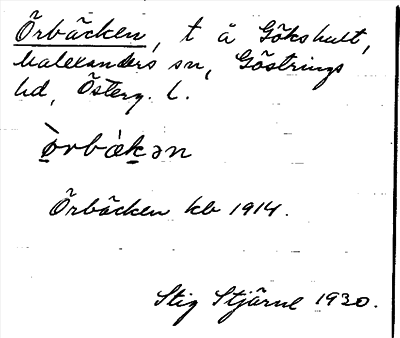 Örbäcken, t å Gökshult,
Malexanders sn, Göstrings
hd, Österg. l.
ò̱rbàḵən
Örbäcken kb 1914.
Stig Stjärne 1930.